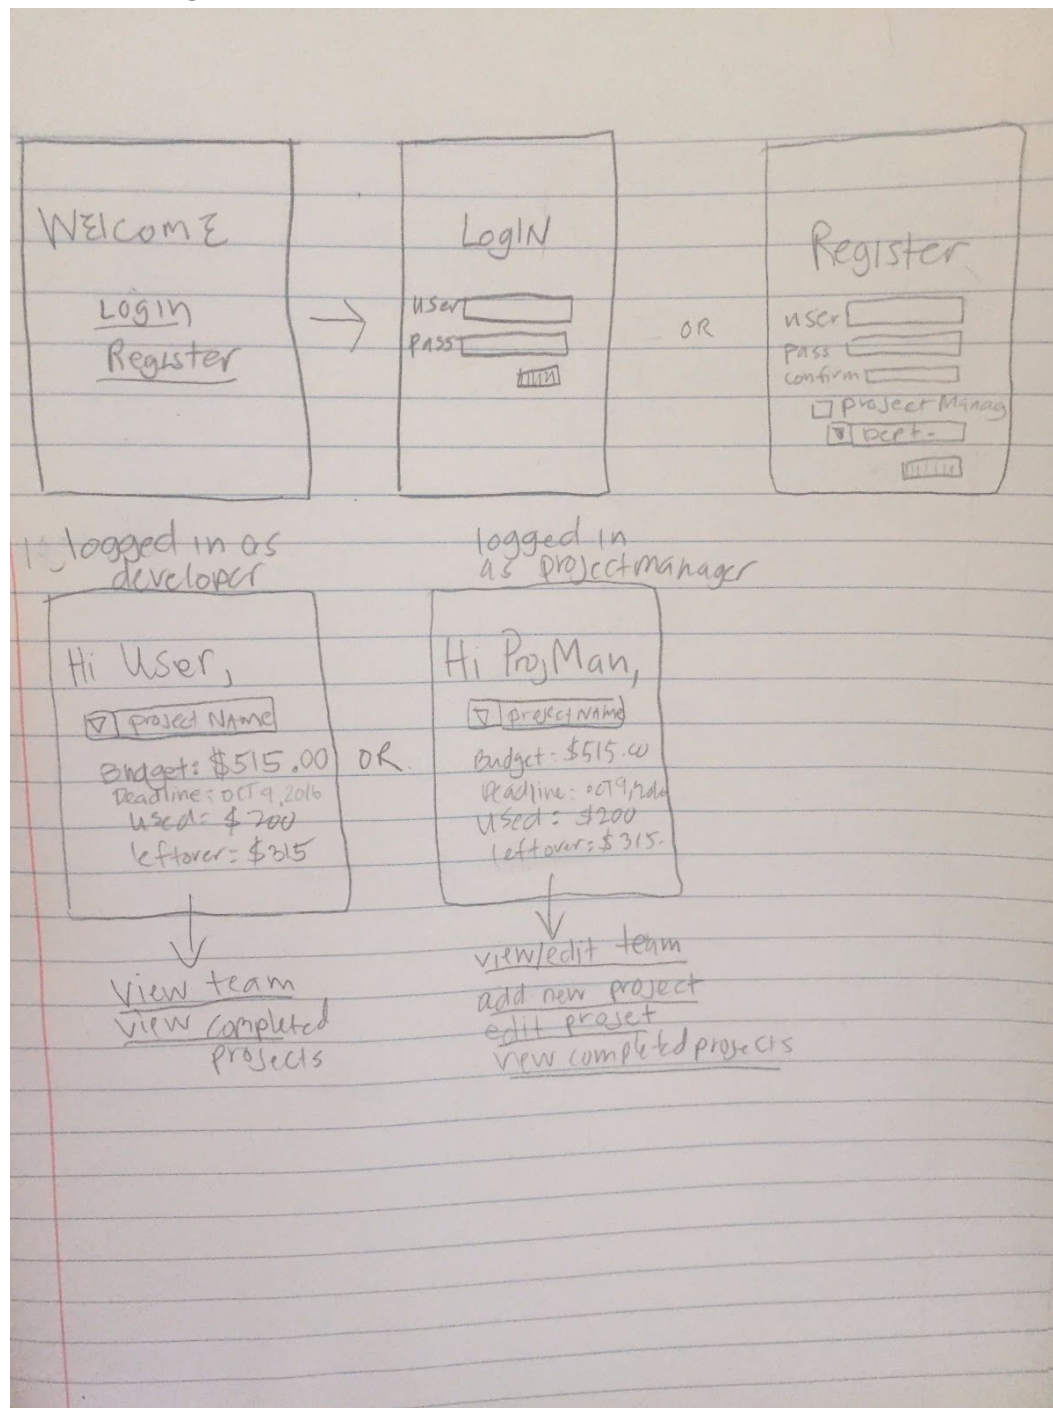 WElcomE
Login
Register
LogIN
user
pass
OR
Register
user
pass
confirm
Project Manag
Dept.
logged in as
developer
Hi User,
project NAme
Budget: $515.00
Deadline: OCT 9, 2016
used: $200
leftover: $315
OR
logged in
as projectmanager
Hi ProjMan,
project NAme
Budget: $515.00
Deadline: OCT 9,
used: $200
leftover: $315.
view team
view completed
projects
view/edit team
add new project
edit projet
view completed projects